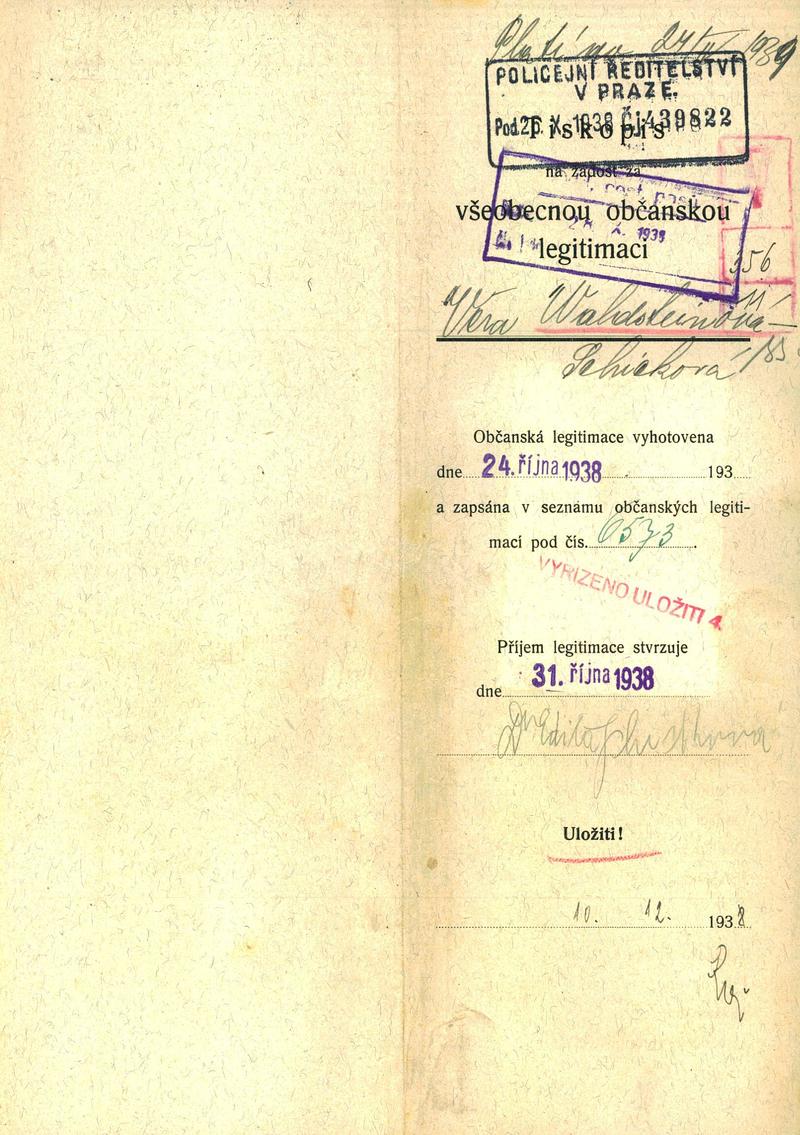 Platí do 1939
POLICEJNÍ ŘEDITELSTVÍ
V PRAZE.
Pod. 26. X. 1938 Čj. 439822
Tiskopis
na žádost za
všeobecnou občanskou
legitimaci
X. 1938
356
11
Věra Waldsteinová–
Schicková
Občanská legitimace vyhotovena
dne 24. října 1938 193
a zapsána v seznamu občanských legiti-
mací pod čís. 6573.
VYŘÍZENO ULOŽITI 4.
Příjem legitimace stvrzuje
dne 31. října 1938
Dr Edita
Uložiti!
10. 12. 1938